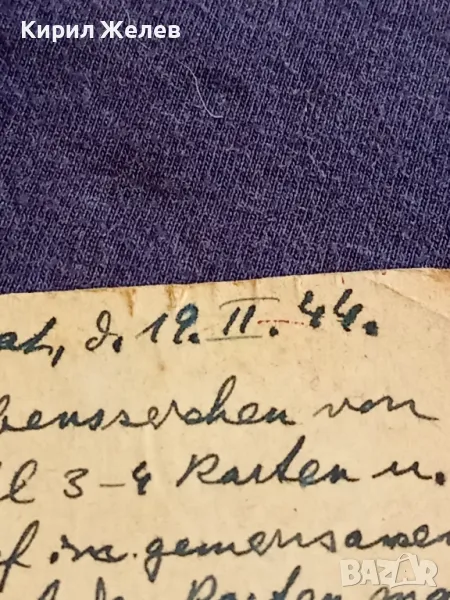 Кирил Желев
at, d. 19. II. 44.
benszeichen von
3-4 Karten u.
f inc. gemeinsamen
Karten
BAZAR